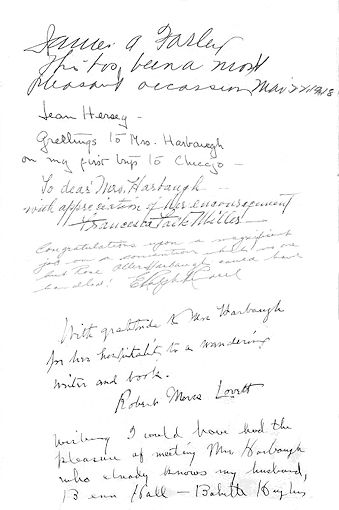 James A Farley
This has been a most
pleasant occasion
Jean Hersey -
Greetings to Mrs. Harbaugh
on my first trip to Chicago -
To dear Mrs. Harbaugh -
with appreciation of her encouragement
Congratulations upon a magnificent
job on a convention which no one
but
handled!
With gratitude to Mrs Harbaugh
for her hospitality to a wandering
writer and book.
Robert Morss Lovett
Wishing I could have had the
pleasure of meeting Mrs. Harbaugh
who already knows my husband,
Hall - Babette Hughes